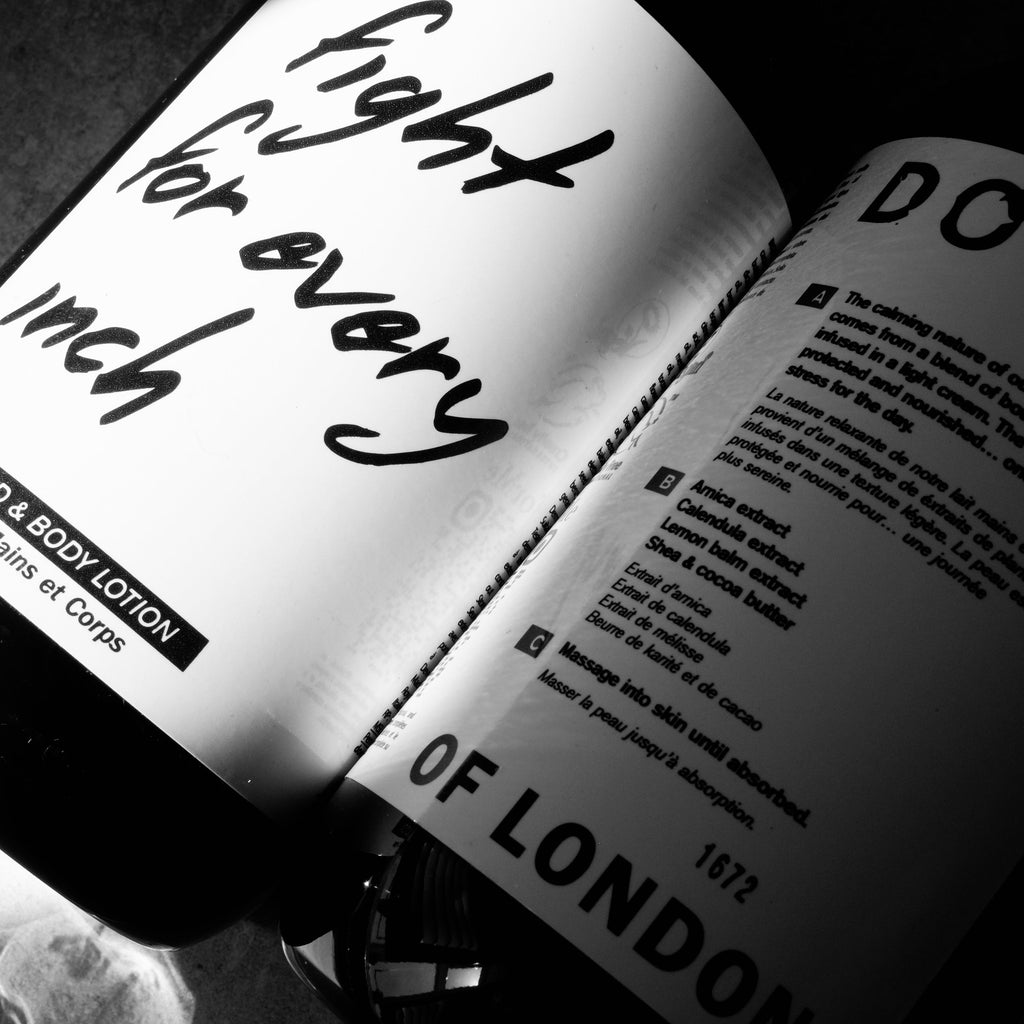 fight
for every
inch
& BODY LOTION
Mains et Corps
DO
A
The calming nature of
comes from a blend of
infused in a light cream. The
protected and nourished...
stress for the day.
La nature relaxante de notre lait mains
provient d'un mélange de éxtraits de
infusés dans une texture légère. La peau
protégée et nourrie pour... une journée
plus sereine.
B
Arnica extract
Calendula extract
Lemon balm extract
Shea & cocoa butter
Extrait d'arnica
Extrait de calendula
Extrait de mélisse
Beurre de karité et de cacao
C
Massage into skin until absorbed.
Masser la peau jusqu'à absorption.
1672
OF LONDON